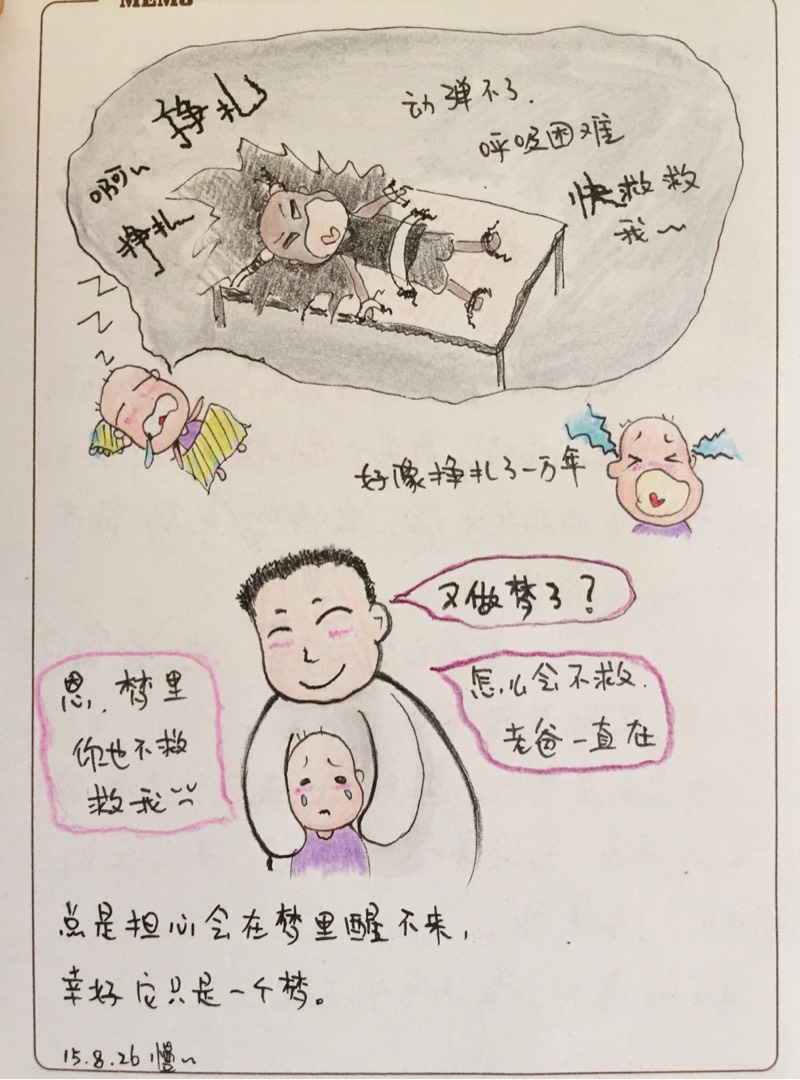 MEMO
挣扎
动弹不了.
呼吸困难
啊~
快救救
我~
挣扎~
z z z
好像挣扎了一万年
又做梦了?
怎么会不救.
老爸一直在
恩,梦里
你也不救
救我
总是担心会在梦里醒不来,
幸好它只是一个梦。
15.8.26 慢~